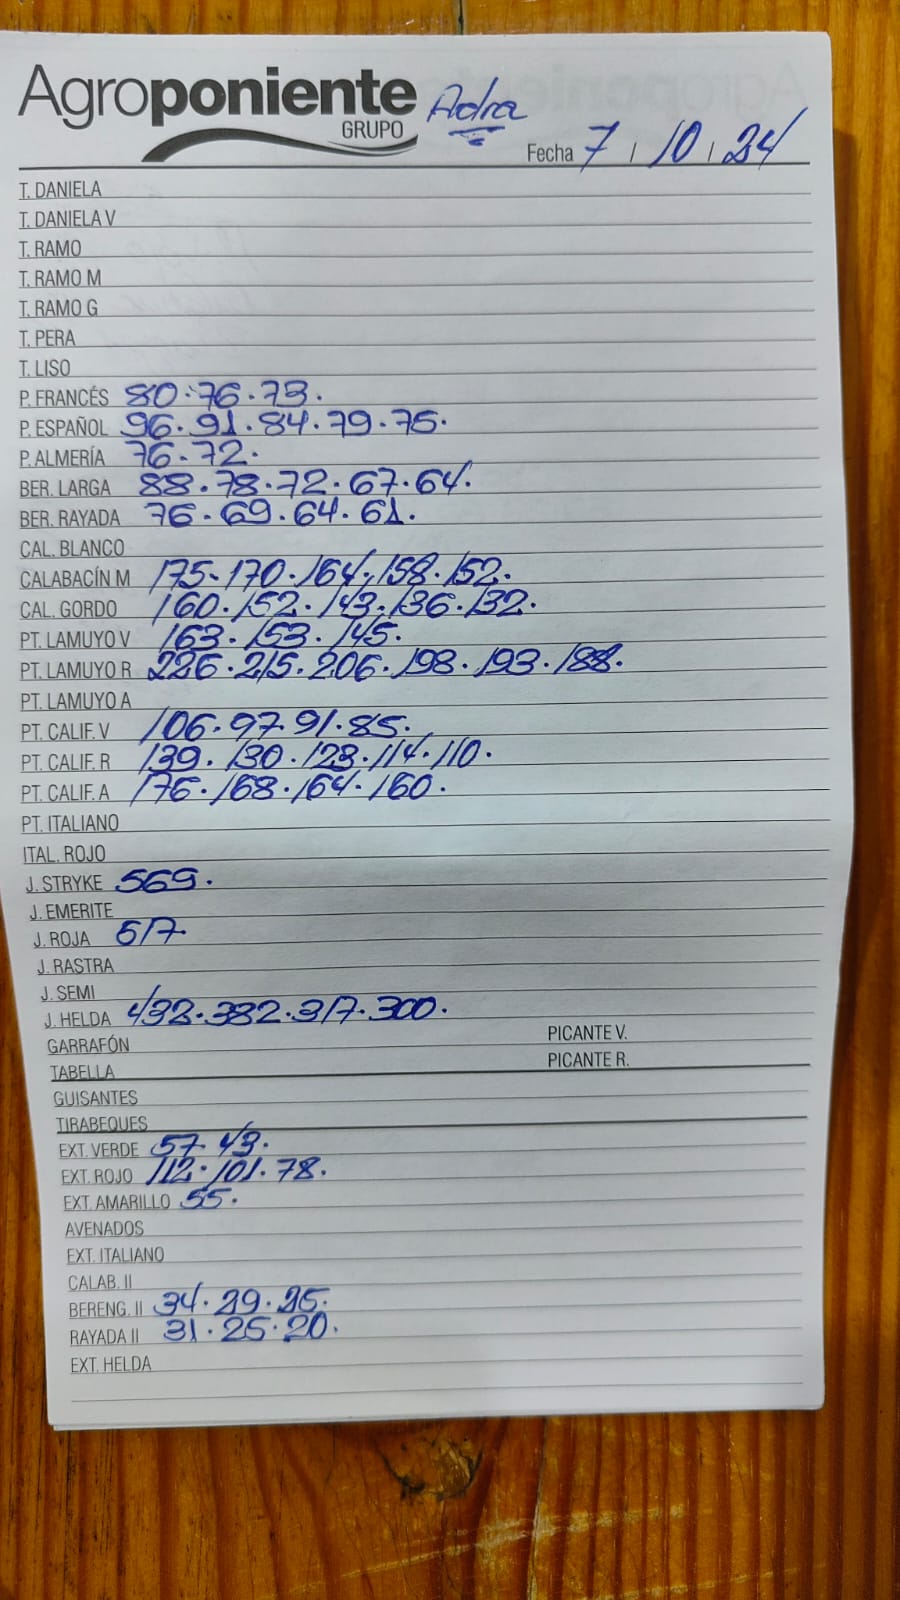 Agroponiente Adra
GRUPO
Fecha 7 / 10 / 24
T. DANIELA
T. DANIELA V
T. RAMO
T. RAMO M
T. RAMO G
T. PERA
T. LISO
P. FRANCÉS 80.76.73.
P. ESPAÑOL 96.91.84.79.75.
P. ALMERÍA 76.72.
BER. LARGA 88.78.72.67.64.
BER. RAYADA 76.69.64.61.
CAL. BLANCO
CALABACÍN M 175.170.164.158.152.
CAL. GORDO 160.152.143.136.132.
PT. LAMUYO V 163.153.145.
PT. LAMUYO R 226.215.206.198.193.188.
PT. LAMUYO A
PT. CALIF. V 106.97.91.85.
PT. CALIF. R 139.130.123.114.110.
PT. CALIF. A 176.168.164.160.
PT. ITALIANO
ITAL. ROJO
J. STRYKE 569.
J. EMERITE
J. ROJA 517.
J. RASTRA
J. SEMI
J. HELDA 432.382.317.300.
GARRAFÓN PICANTE V.
TABELLA PICANTE R.
GUISANTES
TIRABEQUES
EXT. VERDE 57.43.
EXT. ROJO 112.101.78.
EXT. AMARILLO 55.
AVENADOS
EXT. ITALIANO
CALAB. II
BERENG. II 34.29.25.
RAYADA II 31.25.20.
EXT. HELDA